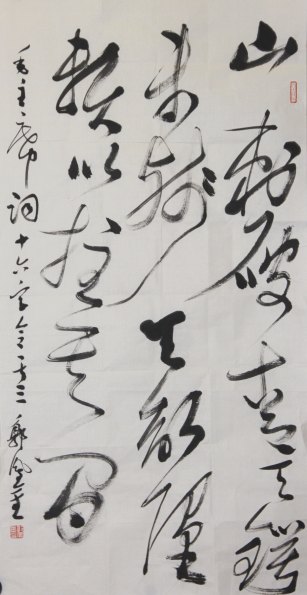 山刺破青天锷
未残天欲堕
赖以拄其间
毛主席词十六字令之三